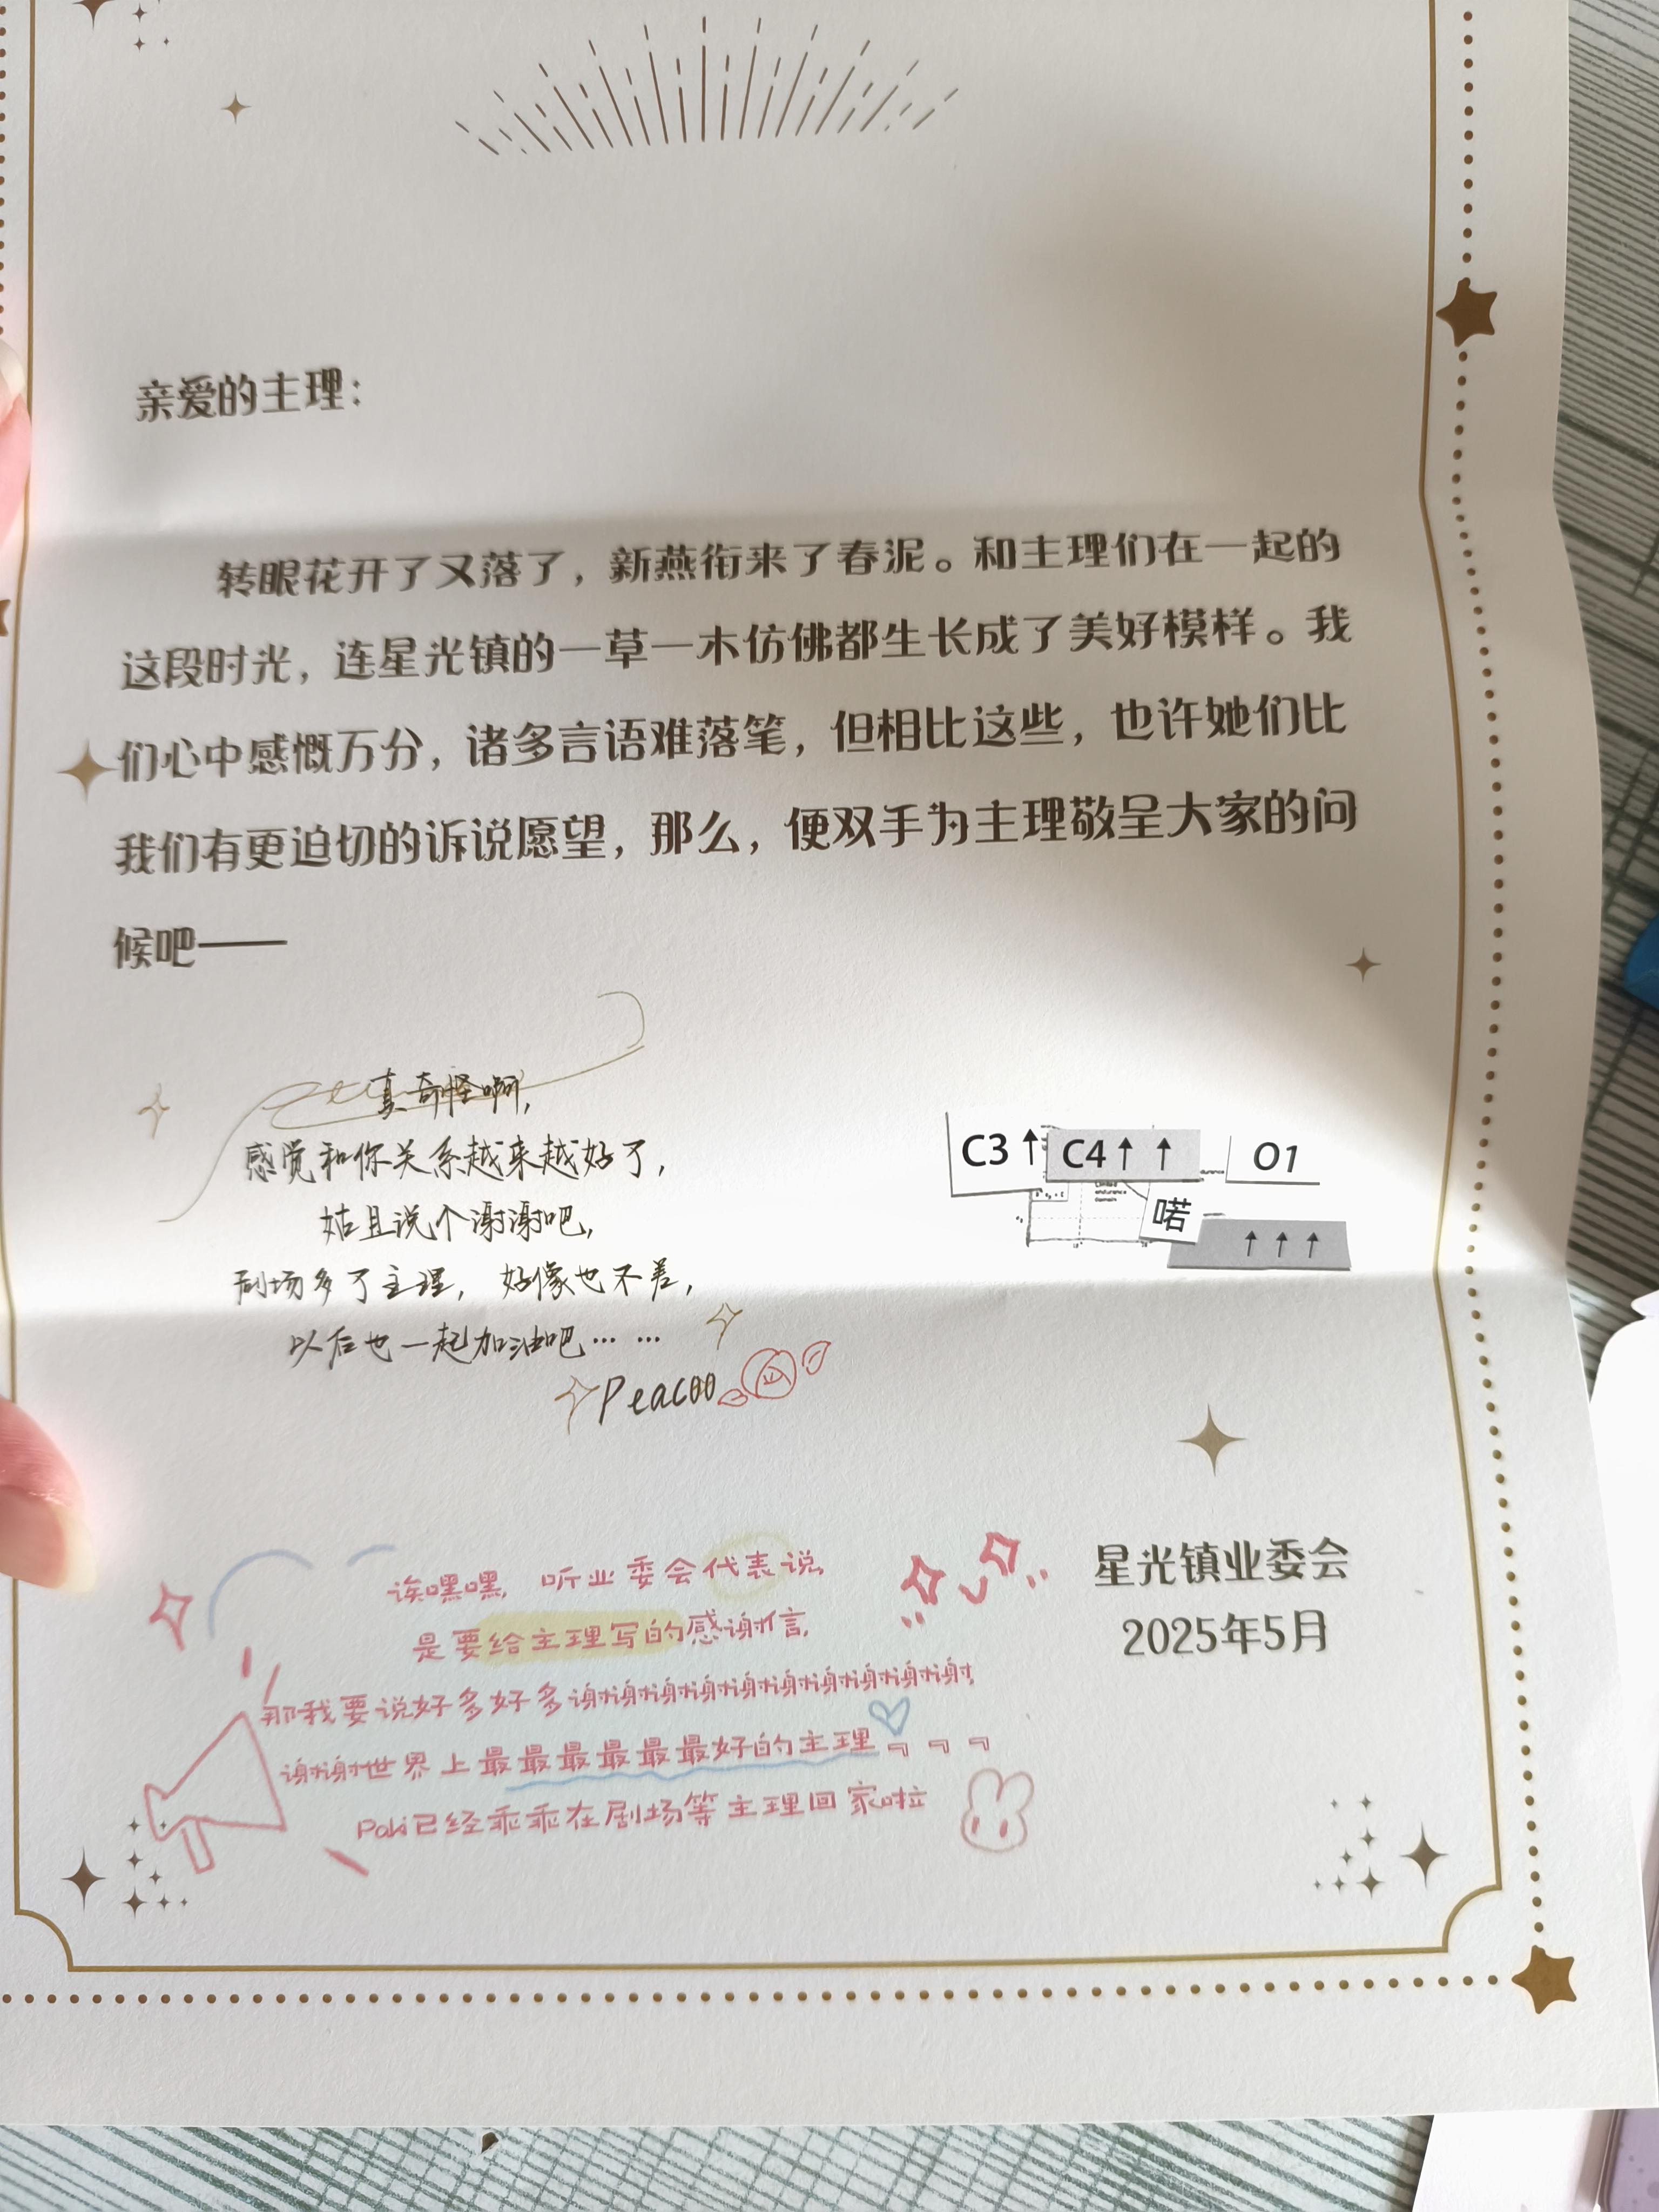 亲爱的主理：
转眼花开了又落了，新燕衔来了春泥。和主理们在一起的
这段时光，连星光镇的一草一木仿佛都生长成了美好模样。我
们心中感慨万分，诸多言语难落笔，但相比这些，也许她们比
我们有更迫切的诉说愿望，那么，便双手为主理敬呈大家的问
候吧——
真奇怪啊，
感觉和你关系越来越好了，
姑且说个谢谢吧，
剧场多了主理，好像也不差，
以后也一起加油吧……
Peacoo
C3↑ C4↑ ↑ O1
喏
↑ ↑ ↑
诶嘿嘿，听业委会代表说
是要给主理写的感谢信，
那我要说好多好多谢谢谢谢谢谢谢谢谢谢谢，
谢谢世界上最最最最最最好的主理
Poki已经乖乖在剧场等主理回家啦
星光镇业委会
2025年5月